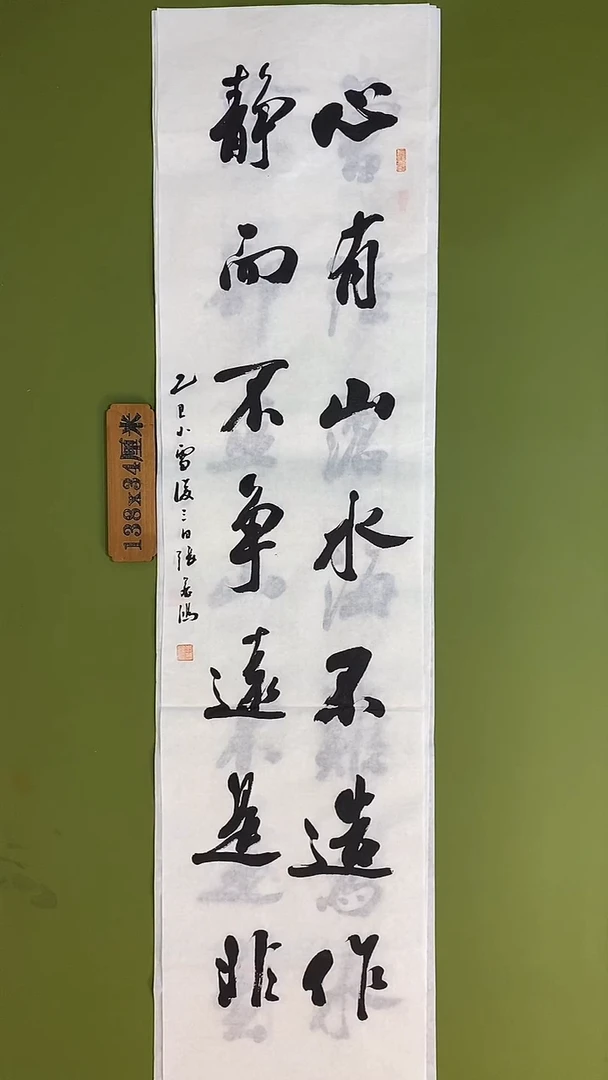 心有山水不造作
静而不争遠是非
乙巳小雪後三日張
138x34厘米